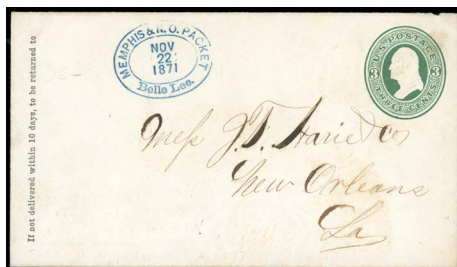 If not delivered within 10 days, to be returned to
MEMPHIS & N.O. PACKET
NOV
22
1871
Belle Lee.
U.S. POSTAGE
3 3
THREE CENTS
Mess J. T. & Co
New Orleans
La